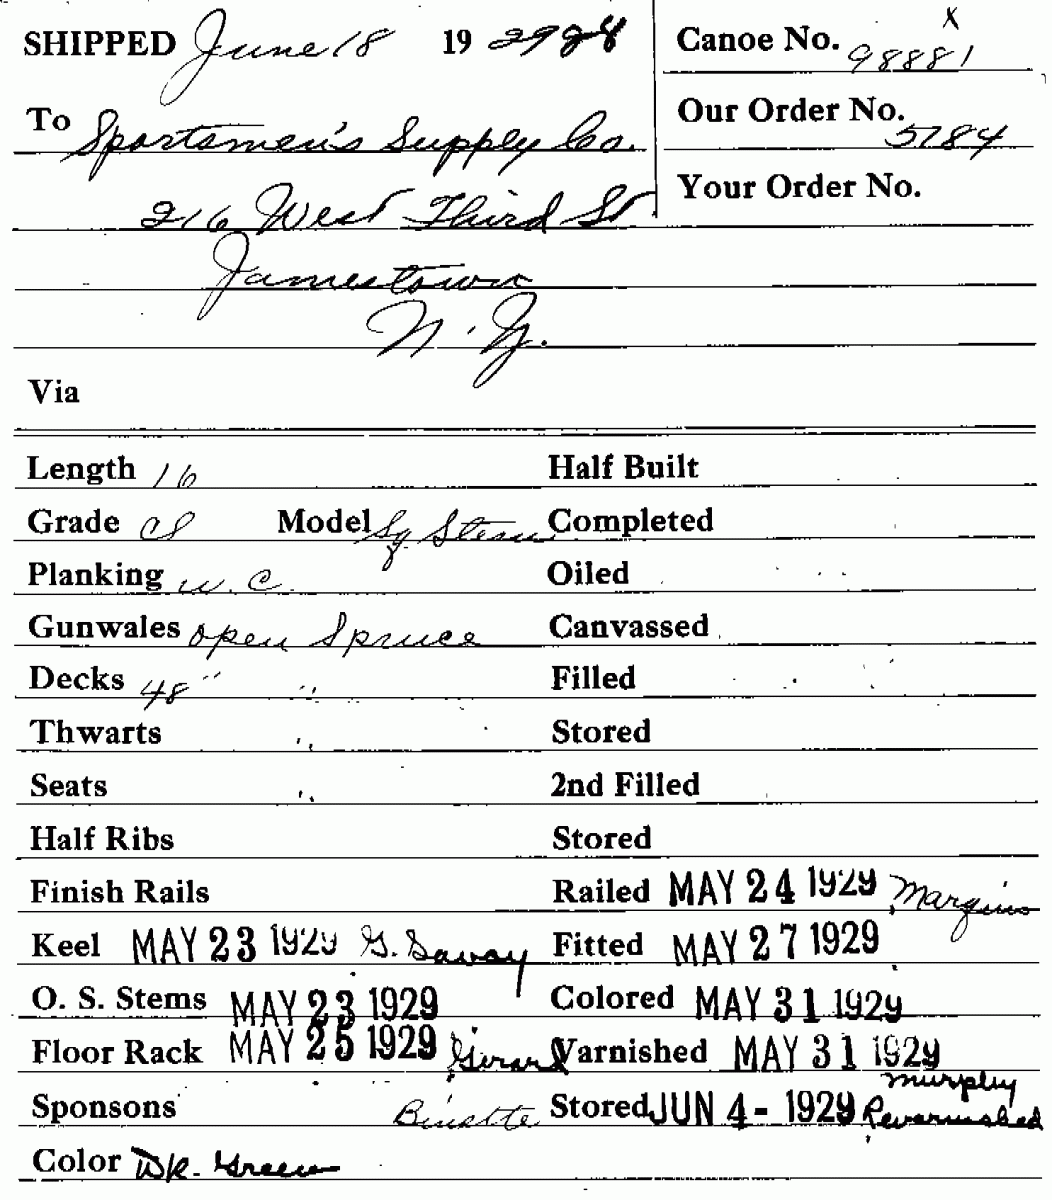 SHIPPED June 18 19 29 28 Canoe No. 98881 X
To Sportsmen's Supply Co. Our Order No. 5784
216 West Third St Your Order No.
Jamestown
N.Y.
Via
Length 16 Half Built
Grade CS Model Sq Stern Completed
Planking W.C. Oiled
Gunwales open Spruce Canvassed
Decks 48" " Filled
Thwarts " Stored
Seats " 2nd Filled
Half Ribs Stored
Finish Rails Railed MAY 24 1929
Keel MAY 23 1929 G. Savoy Fitted MAY 27 1929
O. S. Stems MAY 23 1929 Colored MAY 31 1929
Floor Rack MAY 25 1929 Girard Varnished MAY 31 1929
Murphy
Sponsons Binette Stored JUN 4 - 1929 Revarnished
Color Dk. Green